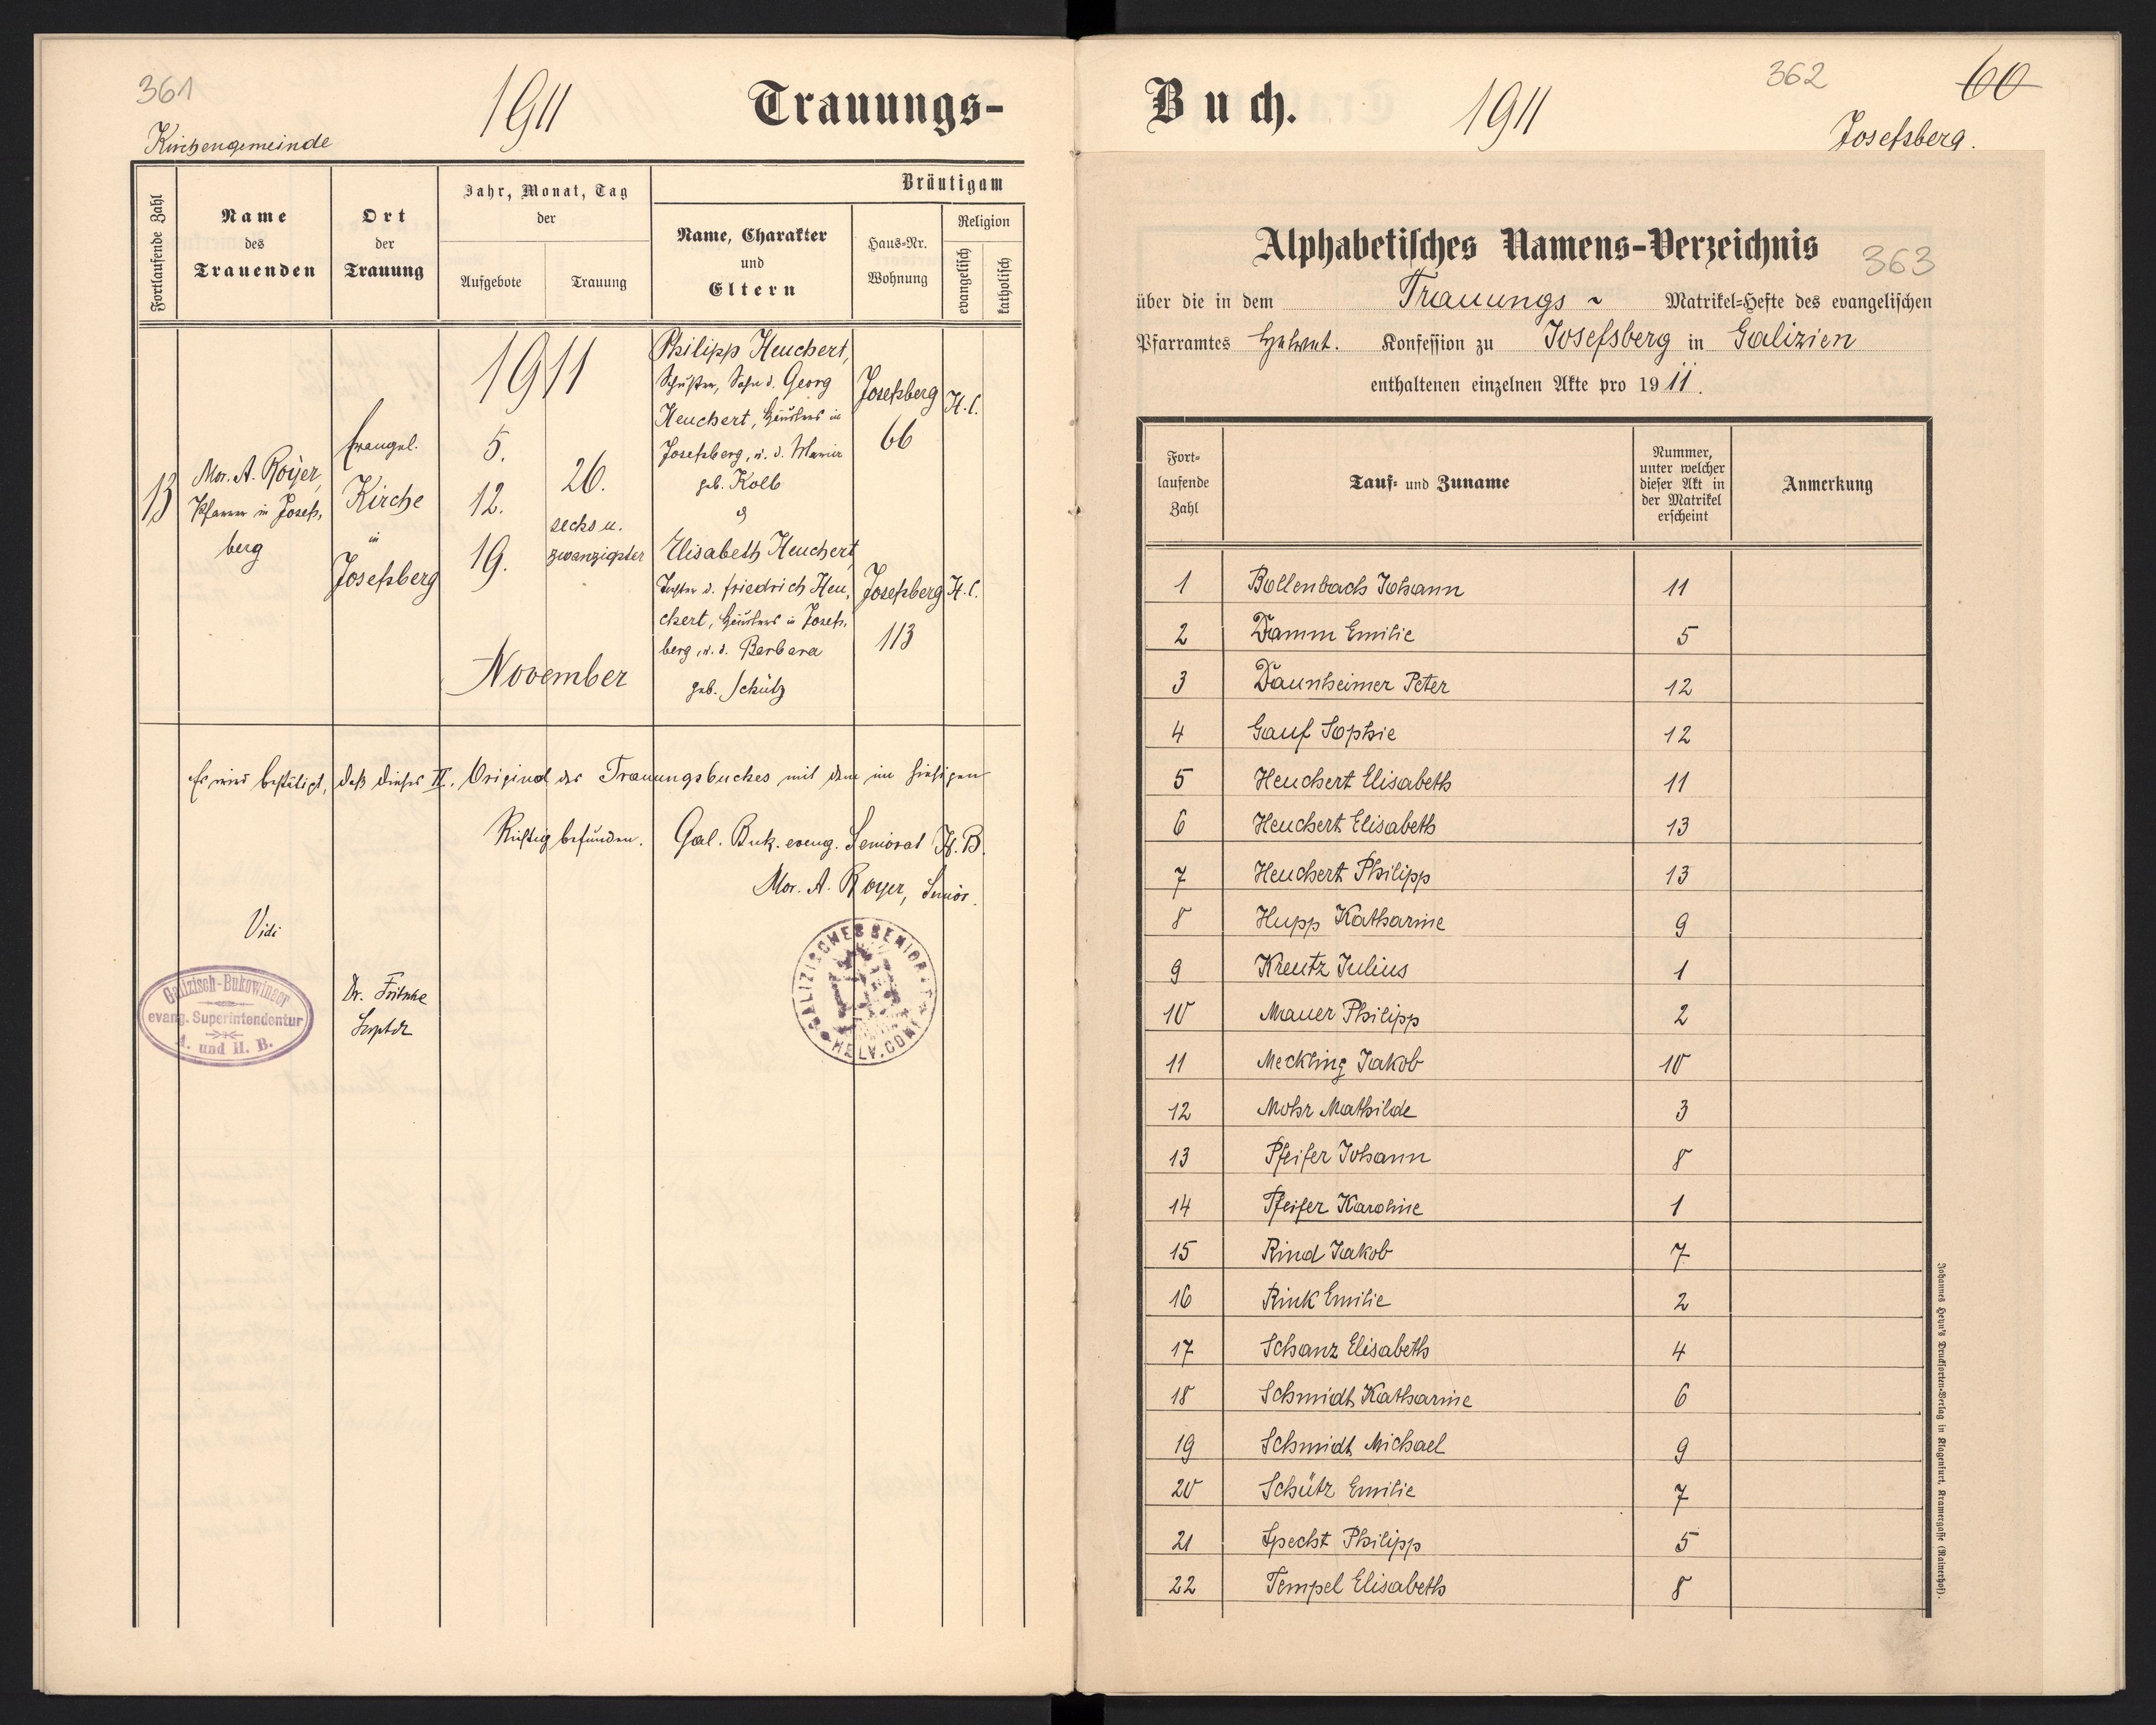 361
1911
Trauungs-
Kirchengemeinde
Fortlaufende Zahl
Name
des
Trauenden
Ort
der
Trauung
Jahr, Monat, Tag
der
Aufgebote
Trauung
Bräutigam
Name, Charakter
und
Eltern
Haus-Nr.
Wohnung
Religion
evangelisch
katholisch
13
Mor. A. Royer,
Pfarrer in Josefs-
berg
Evangel.
Kirche
in
Josefsberg
1911
5.
12.
19.
26.
sechs u.
zwanzigster
November
Philipp Heuchert,
Schuster, Sohn d. Georg
Heuchert, Häuslers in
Josefsberg, u. d. Maria
geb. Kolb
&
Elisabeth Heuchert,
Tochter d. Friedrich Heu-
chert, Häuslers in Josefs-
berg, u. d. Barbara
geb. Schütz
Josefsberg
66
H.C.
Josefsberg
113
H.C.
Es wird bestätigt, daß dieses II. Original des Trauungsbuches mit dem im hiesigen
Richtig befunden. Gal. Buk. evang. Seniorat H.B.
Mor. A. Royer, Senior.
Vidi
Galizisch-Bukowineer
evang. Superintendentur
A. und H. B.
Dr. Fritsche
Suptdt
GALIZISCHES SENIORAT
HELV. CONF.
Buch.
1911
362
60
Josefsberg.
Alphabetisches Namens-Verzeichnis
363
über die in dem Trauungs- Matrikel-Hefte des evangelischen
Pfarramtes Helvet. Konfession zu Josefsberg in Galizien
enthaltenen einzelnen Akte pro 1911.
Fort-
laufende
Zahl
Tauf- und Zuname
Nummer,
unter welcher
dieser Akt in
der Matrikel
erscheint
Anmerkung
1 Bollenbach Johann 11
2 Damm Emilie 5
3 Daunheimer Peter 12
4 Gauf Sophie 12
5 Heuchert Elisabeth 11
6 Heuchert Elisabeth 13
7 Heuchert Philipp 13
8 Hupp Katharine 9
9 Kreutz Julius 1
10 Mauer Philipp 2
11 Meckling Jakob 10
12 Mohr Mathilde 3
13 Pfeifer Johann 8
14 Pfeifer Karoline 1
15 Rind Jakob 7
16 Rink Emilie 2
17 Schanz Elisabeth 4
18 Schmidt Katharine 6
19 Schmidt Michael 9
20 Schütz Emilie 7
21 Specht Philipp 5
22 Tempel Elisabeth 8
Johannes Heyn's Drucksorten-Verlag in Klagenfurt, Kramergasse (Rainerhof).